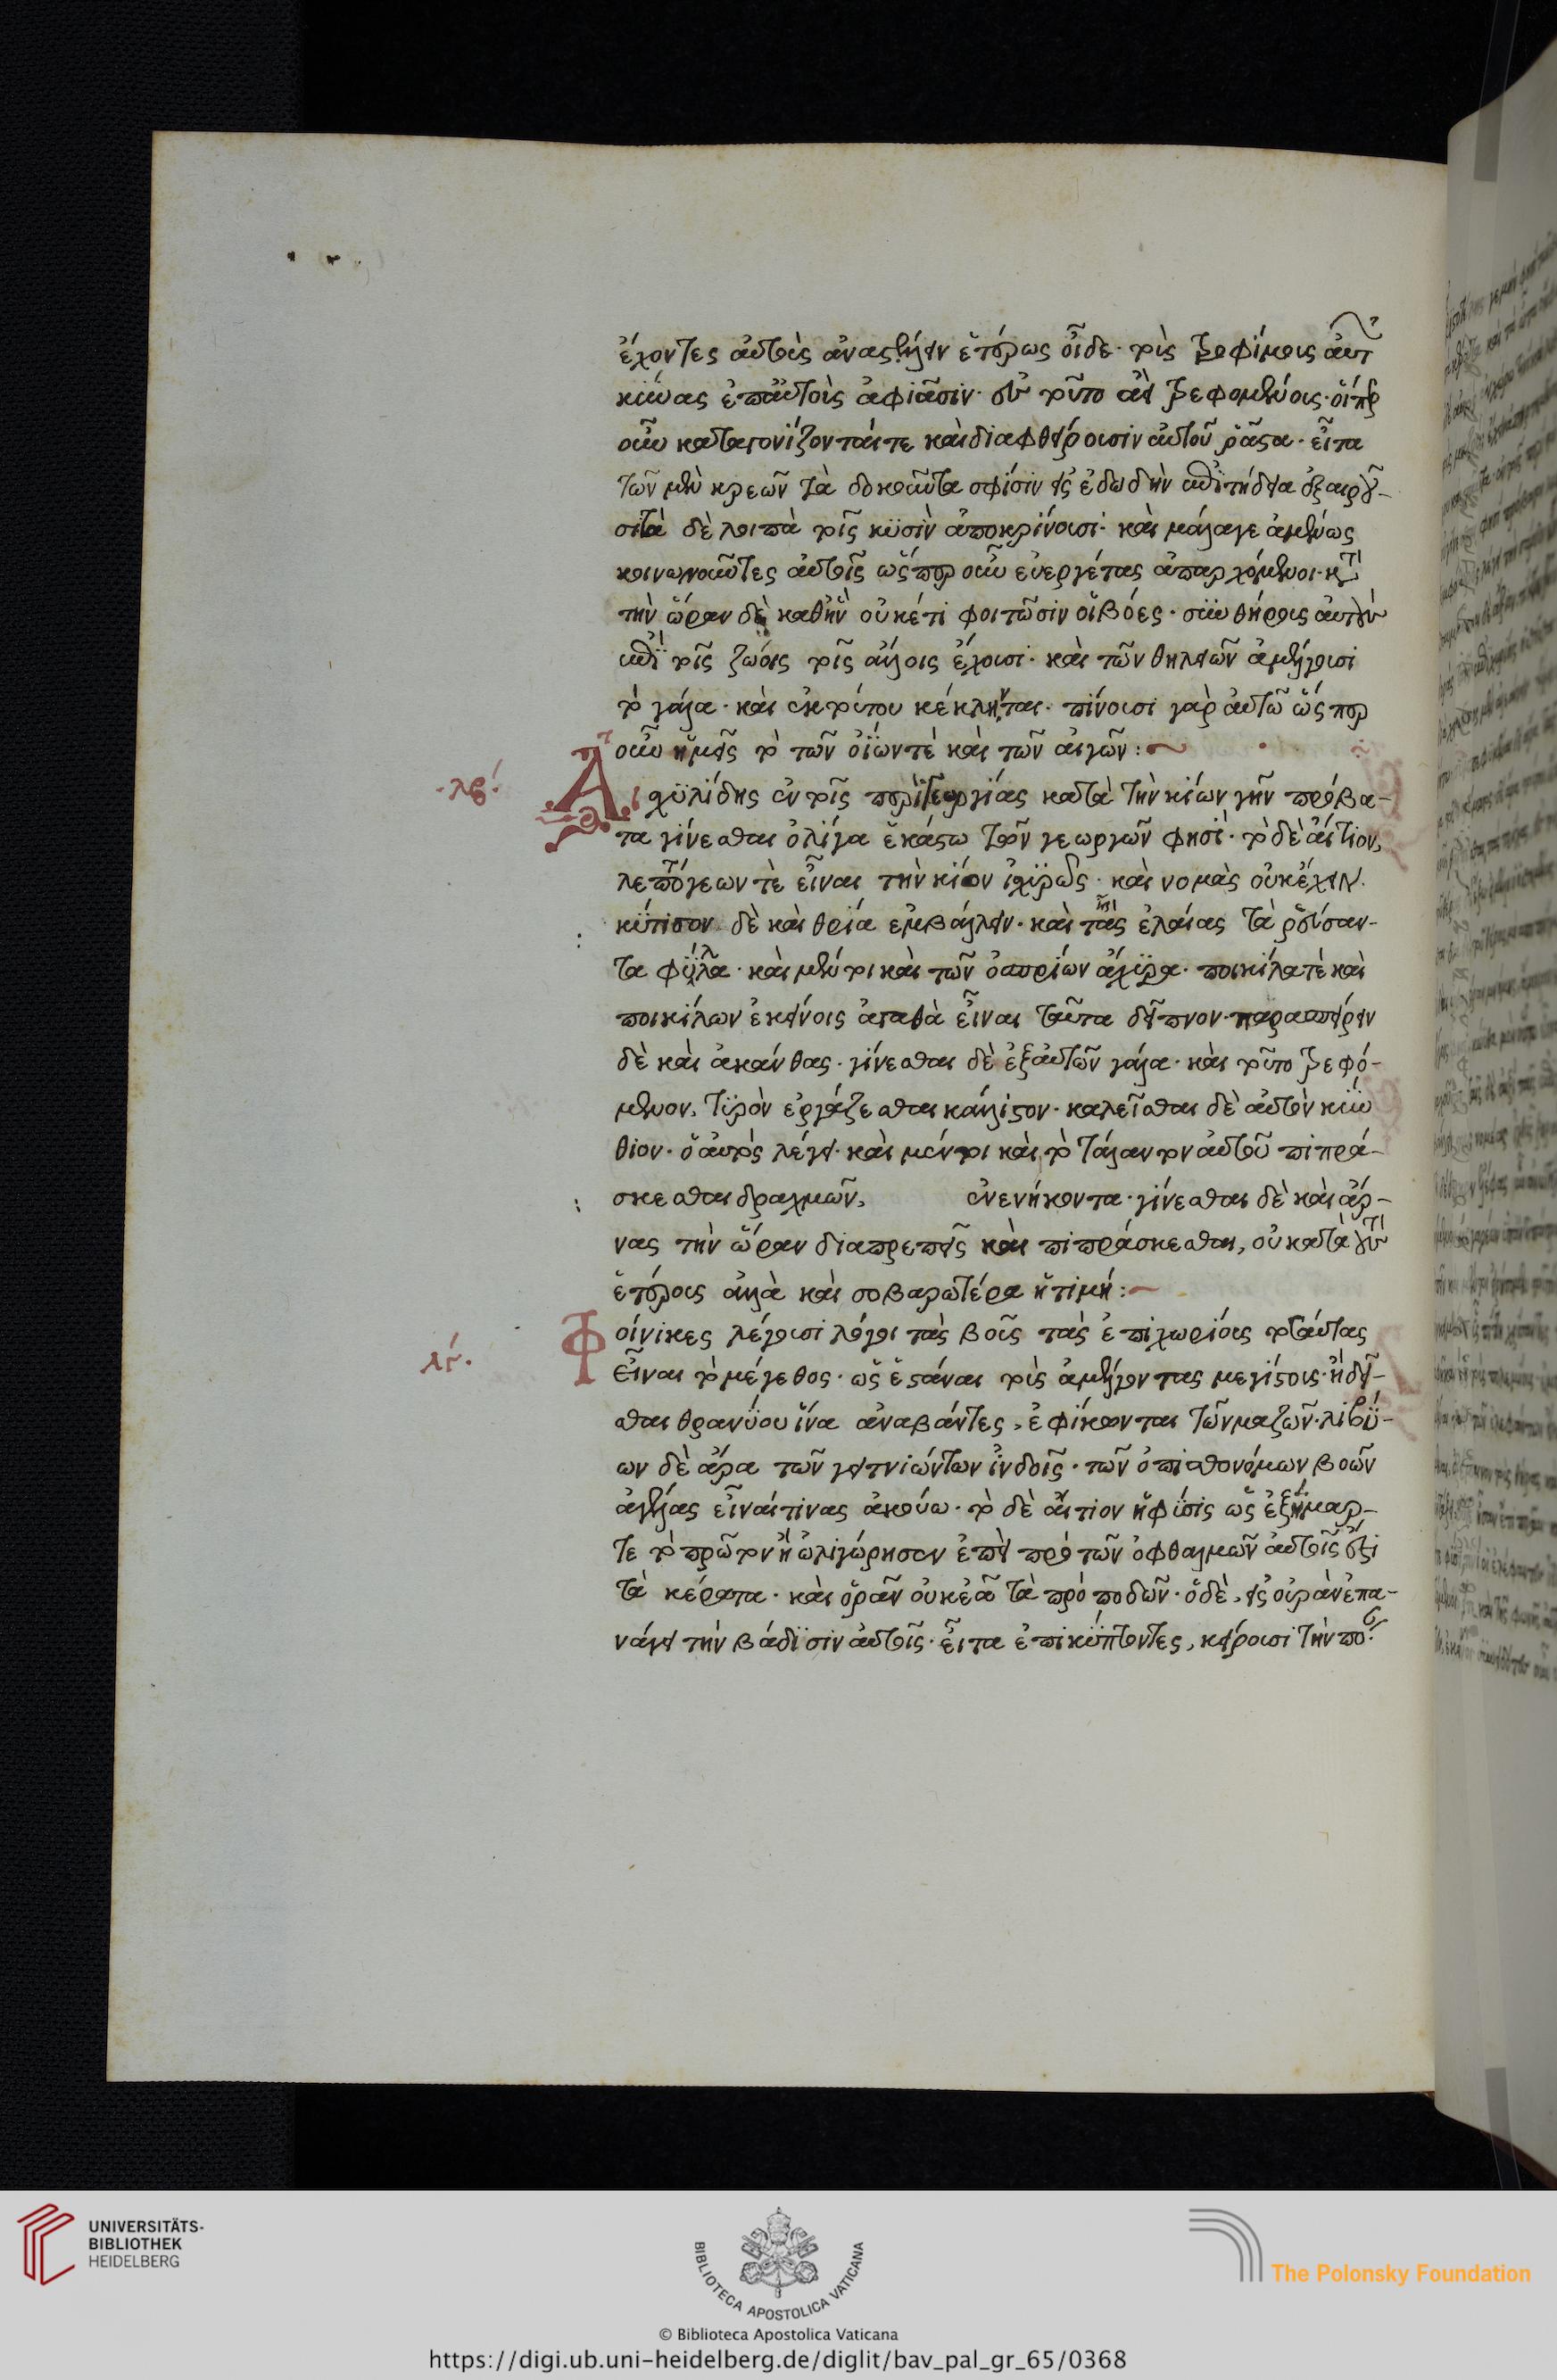 ἔχοντες αὐτοὺς ἀναστέλλειν ἑτέρως οἵδε· τοὺς τροφίμους αὐτῶν
κύνας ἐπ' αὐτοὺς ἀφιᾶσιν· σὺν τοῦτο ἀεὶ τρεφομένους· οἵπερ
οὖν καταγωνίζονταί τε καὶ διαφθείρουσιν αὐτοὺς ῥᾷστα· εἶτα
τῶν μὲν κρεῶν τὰ δοκοῦντα σφίσιν εἰς ἐδωδὴν ἐπιτήδεια ἐξαιροῦ-
σι τὰ δὲ λοιπὰ τοῖς κυσὶν ἀποκρίνουσι· καὶ μάλα γε ἀσμένως
κοινωνοῦντες αὐτοῖς ὥσπερ οὖν εὐεργέταις ἀπαρχόμενοι· κατὰ
τὴν ὥραν δὲ καθ' ἣν οὐκέτι φοιτῶσιν οἱ βόες· συνθήρους αὐτοὺς
ἐπὶ τοῖς ζώοις τοῖς ἄλλοις ἔχουσι· καὶ τῶν θηλειῶν ἀμέλγουσι
τὸ γάλα· καὶ ἐκ τούτου κέκληνται· πίνουσι γὰρ αὐτὸ ὥσπερ
οὖν ἡμεῖς τὸ τῶν οἰῶν τὲ καὶ τῶν αἰγῶν:
λβ΄
Αἰσχυλίδης ἐν τοῖς περὶ γεωργίας κατὰ τὴν κίων γῆν πρόβα-
τα γίνεσθαι ὀλίγα ἑκάστω τῶν γεωργῶν φησί· τὸ δὲ αἴτιον,
λεπτόγεων τὲ εἶναι τὴν κίον ἰσχυρῶς· καὶ νομὰς οὐκ ἔχειν·
κύτισον δὲ καὶ θρία ἐμβάλλειν· καὶ τῆς ἐλαίας τὰ ῥεύσαν-
τα φύλλα· καὶ μέντοι καὶ τῶν ὀσπρίων ἄχυρα· ποικίλα τὲ καὶ
ποικίλων ἐκείνοις ἀγαθὰ εἶναι ταῦτα δεῖπνον· παρασπείρειν
δὲ καὶ ἀκάνθας· γίνεσθαι δὲ ἐξ αὐτῶν γάλα· καὶ τοῦτο τρεφό-
μενον, τυρὸν ἐργάζεσθαι κάλλιστον· καλεῖσθαι δὲ αὐτὸν κύν
θιον· ὁ αὐτὸς λέγει· καὶ μέντοι καὶ τὸ τάλαντον αὐτοῦ πιπρά-
σκεσθαι δραχμῶν, ἐνενήκοντα· γίνεσθαι δὲ καὶ ἄρ-
νας τὴν ὥραν διαπρεπεῖς καὶ πιπράσκεσθαι, οὐ κατὰ τοὺς
ἑτέρους ἀλλὰ καὶ σοβαρωτέρα ἡ τιμή:
λγ΄
Φοίνικες λέγουσι λόγοι τὰς βοῦς τὰς ἐπιχωρίους τοσαύτας
εἶναι τὸ μέγεθος· ὡς ἑστάναι τοὺς ἀμέλγοντας μεγίστους· ἢ δεῖ-
σθαι θρανύου ἵνα ἀναβάντες, ἐφίκονται τῶν μαζῶν· λιβύ-
ων δὲ ἄρα τῶν γειτνιώντων ἰνδοῖς· τῶν ὀπισθονόμων βοῶν
ἀγέλας εἶναί τινας ἀκούω· τὸ δὲ αἴτιον ἡ φύσις ὡς ἐξήμαρ-
τε τὸ πρῶτον ἢ ὠλιγώρησεν ἐπεὶ πρὸ τῶν ὀφθαλμῶν αὐτοῖς ἐστι
τὰ κέρατα· καὶ ὁρᾶν οὐκ ἐᾷ τὰ πρὸ ποδῶν· ὁ δὲ, εἰς οὐρὰν ἐπα-
νάγει τὴν βάδισιν αὐτοῖς· εἶτα ἐπικύπτοντες, κείρουσι τὴν πό
UNIVERSITÄTS-
BIBLIOTHEK
HEIDELBERG
BIBLIOTECA APOSTOLICA VATICANA
The Polonsky Foundation
© Biblioteca Apostolica Vaticana
https://digi.ub.uni-heidelberg.de/diglit/bav_pal_gr_65/0368